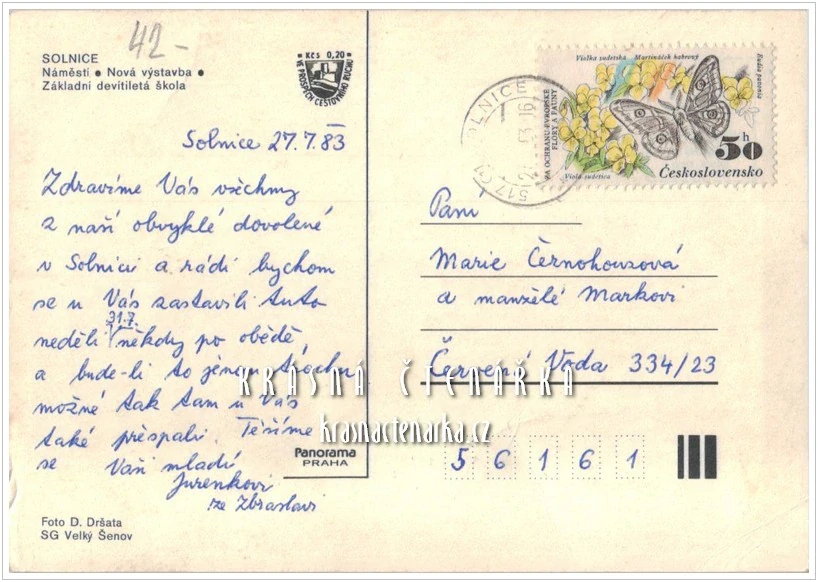 42-
SOLNICE
Náměstí • Nová výstavba •
Základní devítiletá škola
Kčs 0,20
VE PROSPĚCH CESTOVNÍHO RUCHU
Solnice 27.7.83
Zdravíme Vás všechny
z naší obvyklé dovolené
v Solnici a rádi bychom
se u Vás zastavili tuto
neděli 31.7. někdy po obědě,
a bude-li to jenom trochu
možné tak tam u Vás
také přespali. Těšíme
se Vaši mladí
Jurenkovi
ze Zbraslavi
Foto D. Dršata
SG Velký Šenov
Panorama
PRAHA
SOLNICE
517 01
Violka sudetská
Martináček habrový
Eudia pavonia
ZA OCHRANU EVROPSKÉ
FLÓRY A FAUNY
Viola sudetica
50 h
Československo
Paní
Marie Černohouzová
a manželé Markovi
Červená Voda 334/23
56161
KRÁSNÁ ČTENÁŘKA
krasnactenarka.cz